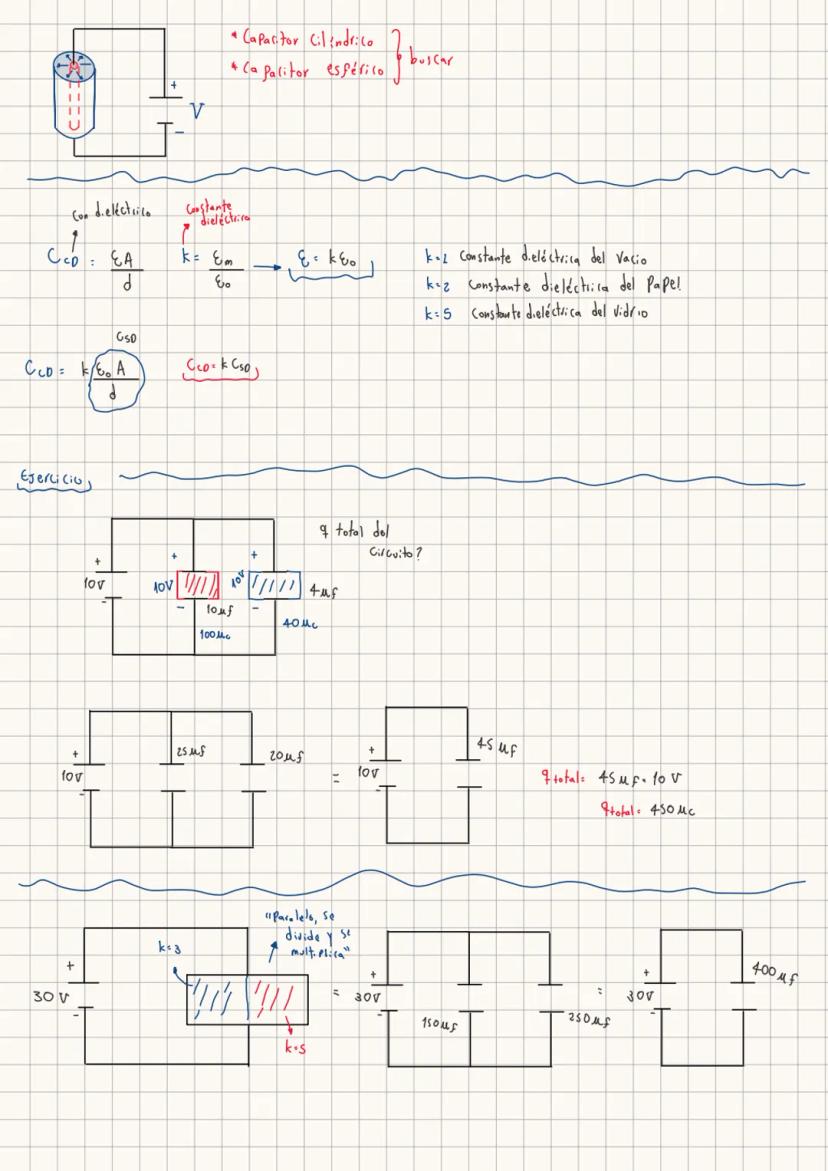 * Capacitor Cilíndrico
* Capacitor esférico
buscar
+
V
-
Con dieléctrico
Constante
dieléctrica
C_CD = εA/d
k = εm/ε₀
ε = kε₀
k=1 Constante dieléctrica del vacio
k=2 Constante dieléctrica del Papel
k=5 Constante dieléctrica del vidrio
C_SD
C_CD = k ε₀A/d
C_CD = k C_SD
Ejercicio
q total del
Circuito?
+ + +
10V 10V 10V 4μf
- - -
10μf
100μc
40μc
+ 25μf 20μf
10V
-
=
+ 45μf
10V
-
q total = 45μf . 10V
q total = 450μc
"Paralelo, se
divide y se
multiplica"
k=3
+
30V
-
k=5
=
+
30V
-
150μf
250μf
=
+ 400μf
30V
-